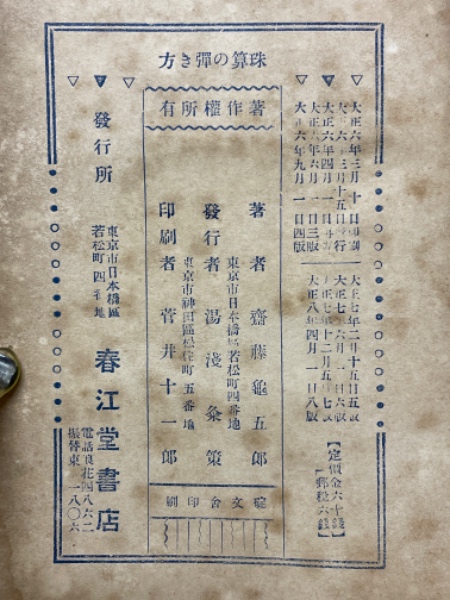 珠算の彈き方
大正六年三月十日印刷
大正六年三月十五日發行
大正六年四月一日再版
大正六年六月一日三版
大正六年九月一日四版
大正七年二月十五日五版
大正七年六月一日六版
大正七年十二月五日七版
大正八年四月一日八版
【定價金六十錢】
【郵稅六錢】
著作權所有
著者 齋藤龜五郎
東京市日本橋區若松町四番地
發行者 湯淺粂策
東京市神田區松住町五番地
印刷者 菅井十一郎
碇文舍印刷
發行所
東京市日本橋區
若松町四番地
春江堂書店
電話浪花四八六二
振替東 一八〇六